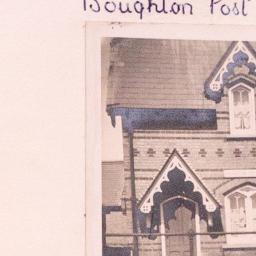 Boughton Post